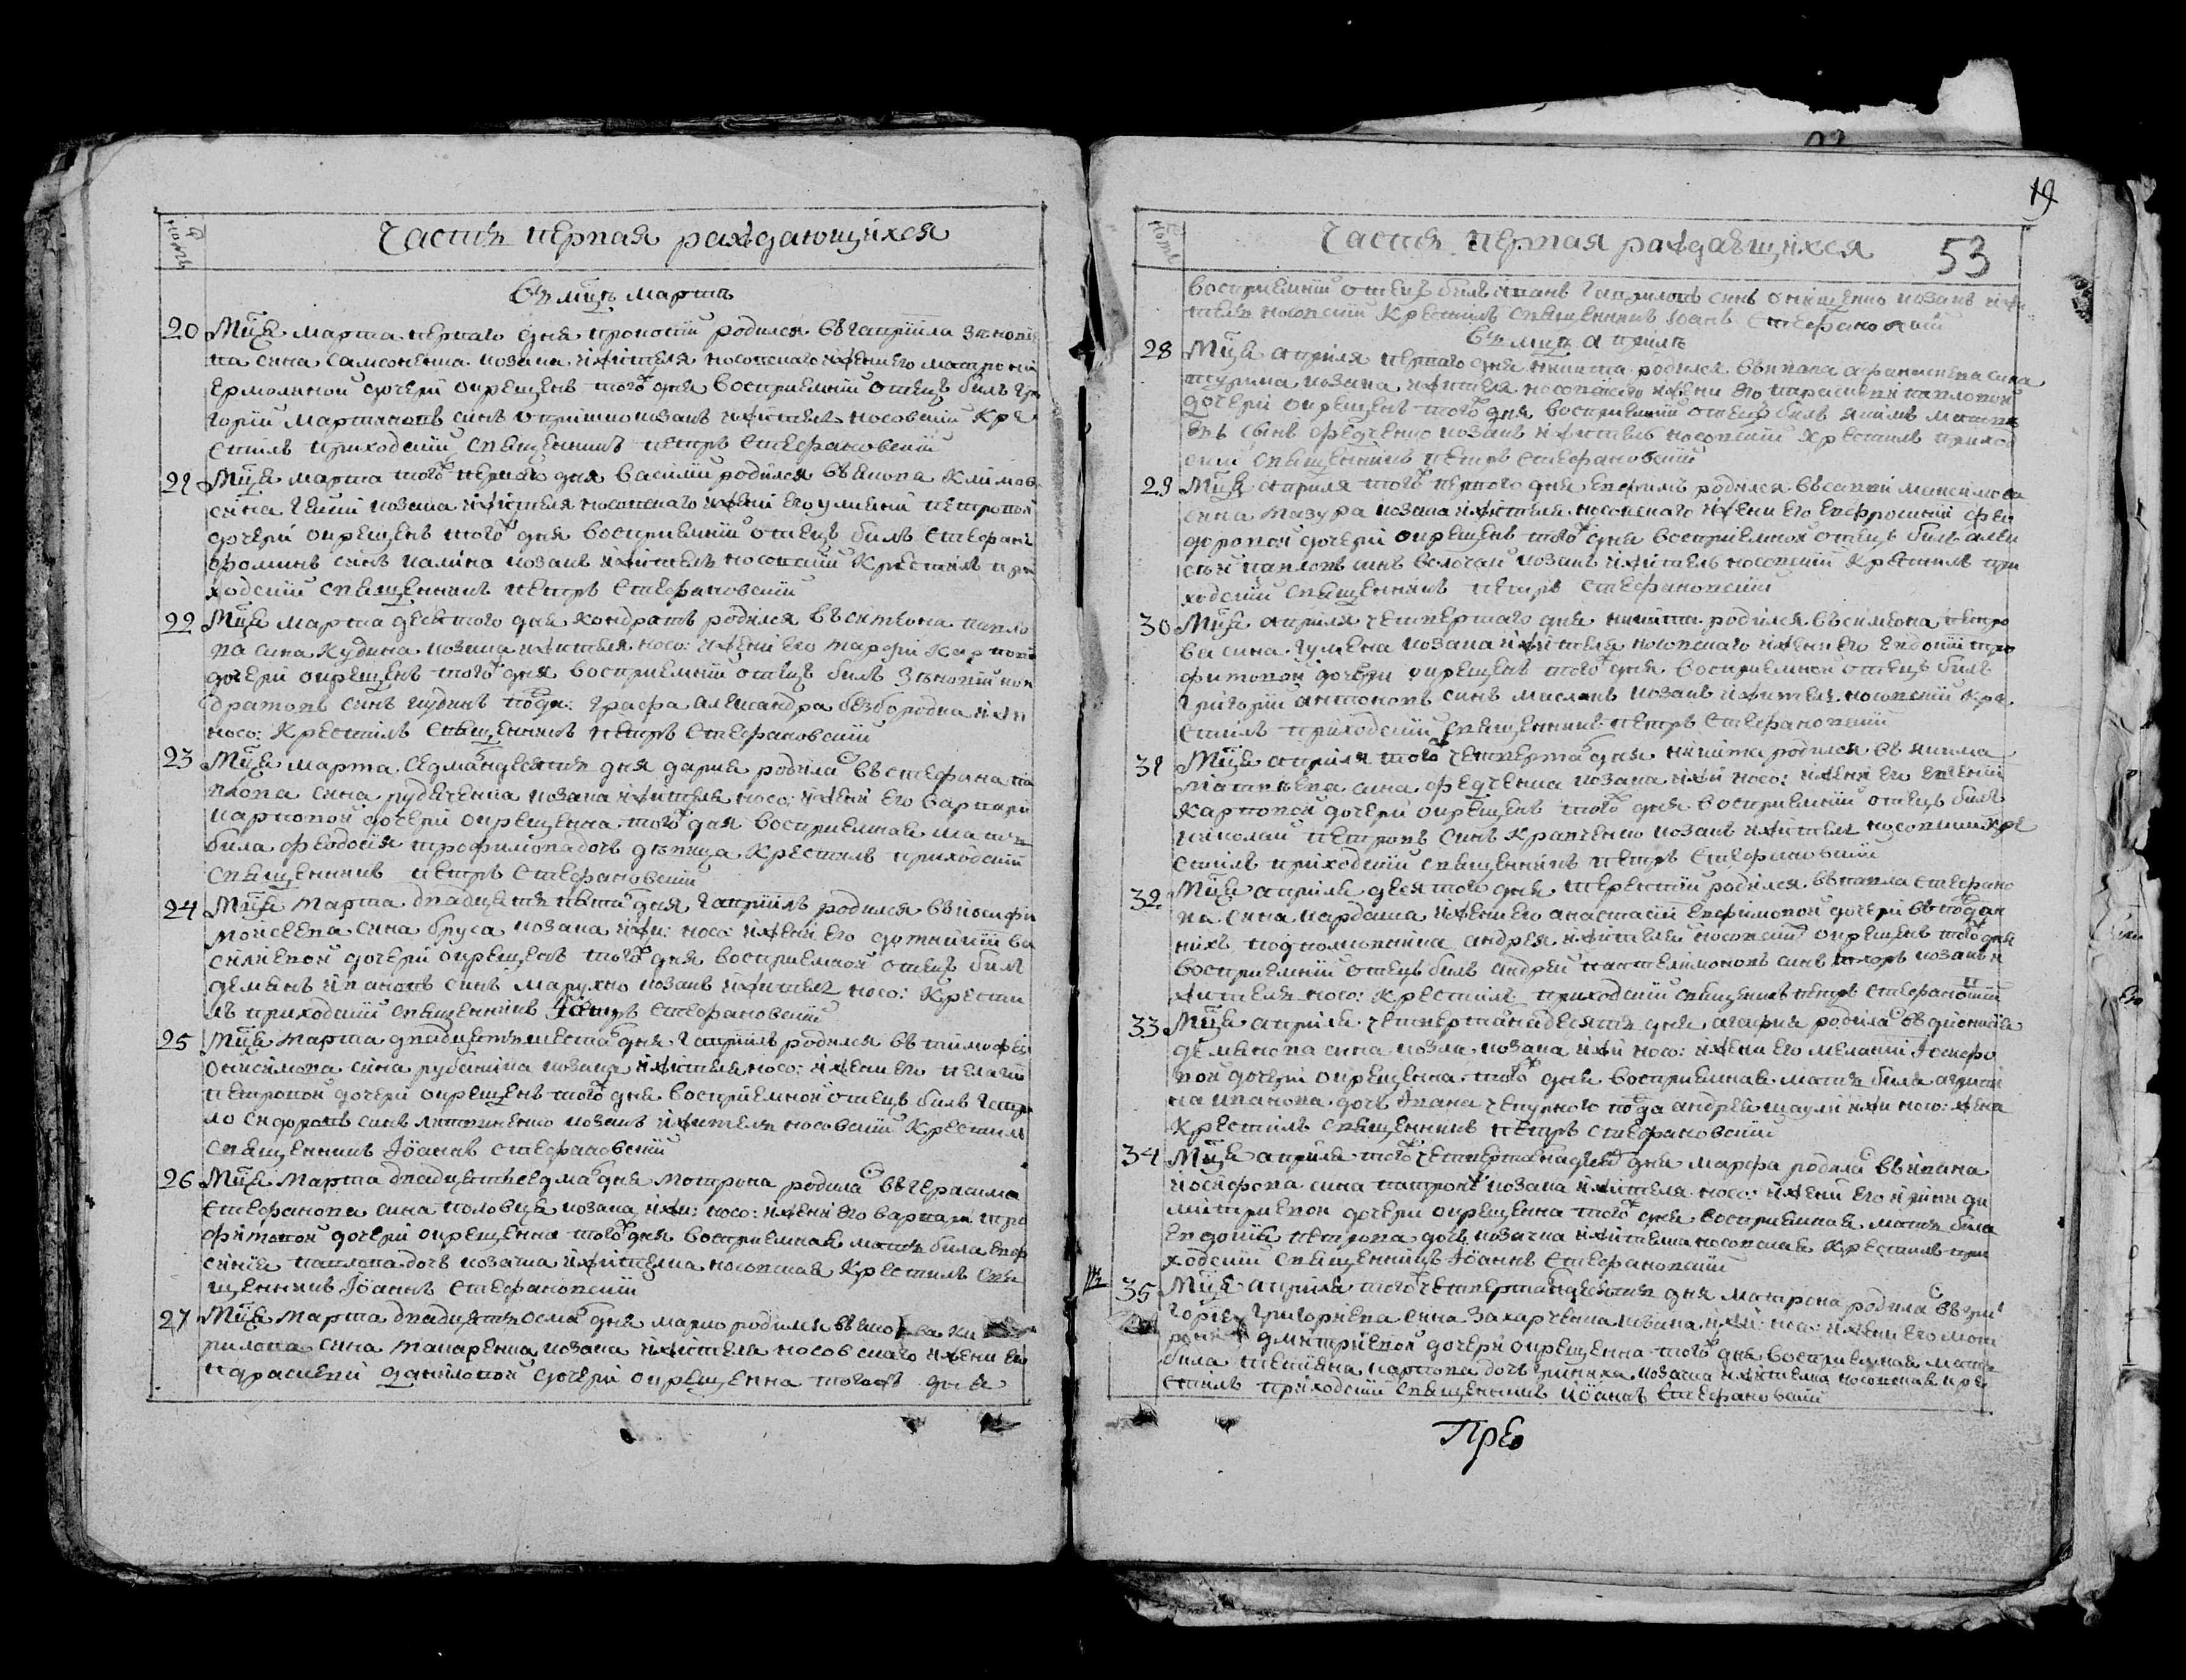 Часть первая раждающихся
Въ мцѣ мартѣ
20 Мца марта перваго дня прокопій родился въ гавріила зѣновіе
ва сина самсоненка козака жителя носовскаго жени его матрони
ермолиной дочери окрещенъ того дня воспріемній отецъ билъ гри
горій мартиновъ синъ козакъ житель носовскій кре
стилъ приходскій священникъ петръ стефановскій
21 Мца марта того первого дня василій родился въ якова климов
сина козака жителя носовскаго жени его улияніи петровой
дочери окрещенъ того дня воспріемній отецъ билъ стефанъ
фоминъ синъ калина козакъ житель носовскій крестилъ при
ходскій священникъ петръ стефановскій
22 Мца марта десятого дня кондратъ родился въ симеона павло
ва сина кудина козака жителя носо: жени его марфи карповой
дочери окрещенъ того дня воспріемній отецъ билъ зѣновій кон
дратовъ синъ кудинъ подда: графа александра безбородка жи
носо: крестилъ священникъ петръ стефановскій
23 Мца марта седманадесять дня дарія родилас въ стефана па
влова сина рудченка козака жителя носо: жени его варвари
карповой дочери окрещенна того дня воспріемная мать
била феодосія трофимова дочь дѣвица крестилъ приходскій
священникъ петръ стефановскій
24 Мца марта двадцять пята дня гавріилъ родился въ іосифа
моисеева сина бруса козака жи: носо: жени его домникіи ва
силіевой дочери окрещенъ того дня воспріемной отецъ билъ
деміянъ ивановъ синъ марухно козакъ житель носо: крести
лъ приходскій священникъ петръ стефановскій
25 Мца марта двадцять шеста дня гавріилъ родился въ тимофея
онисимова сина рубанина козака жителя носо: жени его пелагіи
петровой дочери окрещенъ того дня воспріемной отецъ билъ гаври
ло сидоровъ синъ литвиненко козакъ житель носовскій крестилъ
священникъ іоаннъ стефановскій
26 Мца марта двадцять седма дня мотрона родилас въ герасима
стефанова сина половця козака жи: носо: жени его варвари тро
фимовой дочери окрещенна того дня воспріемная мать била ефро
синія павлова дочь козачка жителка носовская крестилъ свя
щенникъ іоаннъ стефановскій
27 Мца марта двадцять осма дня марко родился въ яко ва ки
рилова сина токаренка козака жителя носовскаго жени его
параскевіи даниловой дочери окрещенна того дня

19
53
Часть первая раждающихся
воспріемній отецъ билъ иванъ гавриловъ синъ онищенко козакъ жи
тель носовскій крестилъ священникъ іоанъ стефановскій
Въ мцѣ априлѣ
28 Мца априля перваго дня никита родился въ ивана афанасиева сина
козака жителя носовскаго жени его параскевіи павловой
дочери окрещенъ того дня воспріемній отецъ билъ якимъ матвѣ
евъ синъ федченко козакъ житель носовскій крестилъ приход
скій священникъ петръ стефановскій
29 Мца априля того первого дня евфимъ родился въ савви максимова
сина мазура козака жителя носовскаго жени его евфросиніи фео
доровой дочери окрещенъ того дня воспріемной отецъ билъ алек
сѣй павловъ синъ волочай козакъ житель носовскій крестилъ при
ходскій священникъ петръ стефановскій
30 Мца априля четвертаго дня никита родился въ симеона петро
ва сина гумена козака жителя носовскаго жени его евдокіи тро
фимовой дочери окрещенъ того дня воспріемной отецъ билъ
григорій антоновъ синъ козакъ жителъ носовскій кре
стилъ приходскій священникъ петръ стефановскій
31 Мца априля того четверта дня никита родился въ якима
матвѣева сина федченка козака жи носо: жени его евгеніи
карповой дочери окрещенъ того дня воспріемній отецъ билъ
николай петровъ синъ кравченко козакъ житель носовскій кре
стилъ приходскій священникъ петръ стефановскій
32 Мца априля десятого дня терентій родился въ павла стефано
ва сина кардаша жени его анастасіи евфимовой дочери въ поддан
нихъ подполковника андрея жителей носовскихъ окрещенъ того дня
воспріемній отецъ билъ андрей пантелимоновъ синъ козакъ
житель носо: крестилъ приходскій священикъ петръ стефановскій
33 Мца априля четвертанадесять дня агафія родилас въ дионисія
деміянова сина козла козака жи носо: жени его меланіи іосифо
вой дочери окрещенна того дня воспріемная мать била агрипи
на иванова дочь ивана чепурного подда андрея жи носо: жена
крестилъ священникъ петръ стефановскій
34 Мца априля того четвертанадеся дня марфа родилас въ ивана
иосифова сина козака жителя носо: жени его ирини ди
митриевой дочери окрещенна того дня воспріемная мать била
евдокія петрова дочь козачка жителка носовская крестилъ при
ходскій священникъ іоаннъ стефановскій
35 Мца априля того четвертанадесять дня матрона родилас въ гри
горіе григориева сина захарченка козака жи: носо: жени его мот
рони димитріевой дочери окрещенна того дня воспріемная мать
била татіяна карпова дочь козачка жителка носовская кре
стилъ приходскій священникъ іоаннъ стефановскій
Пре